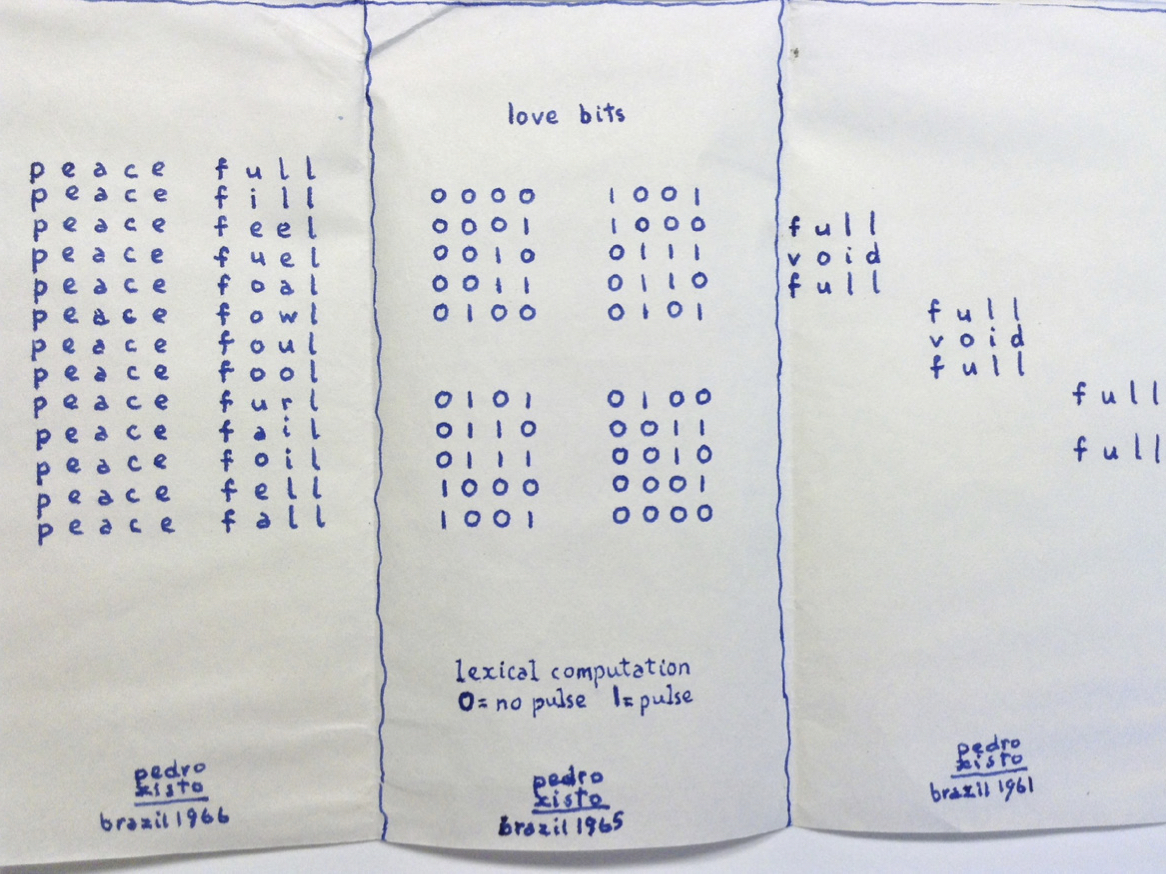 peace full
peace fill
peace feel
peace fuel
peace foal
peace fowl
peace foul
peace fool
peace furl
peace fail
peace foil
peace fell
peace fall
pedro
xisto
brazil 1966
love bits
0000 1001
0001 1000
0010 0111
0011 0110
0100 0101
0101 0100
0110 0011
0111 0010
1000 0001
1001 0000
lexical computation
0= no pulse 1= pulse
pedro
xisto
brazil 1965
full
void
full
full
void
full
full
full
pedro
xisto
brazil 1961